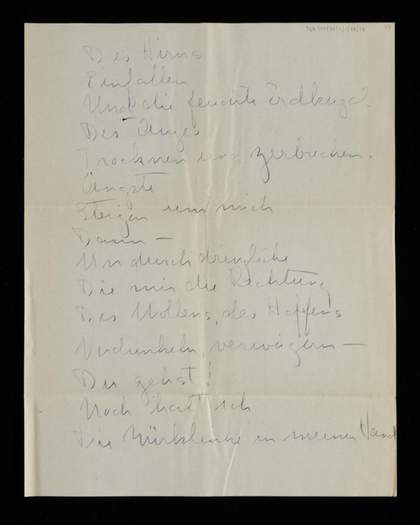 Des Hirns
Einfallen
Und die feuchte Erdkugel
Des Auges
Trocknen und zerbrechen.
Ängste
Steigen um mich
Dann –
Undurchdringliche
Die mir die Richtung
Des Wollens, des Hoffens
Verdunkeln, verweigern –
Du gehst!
Noch hart ich
Die in meiner